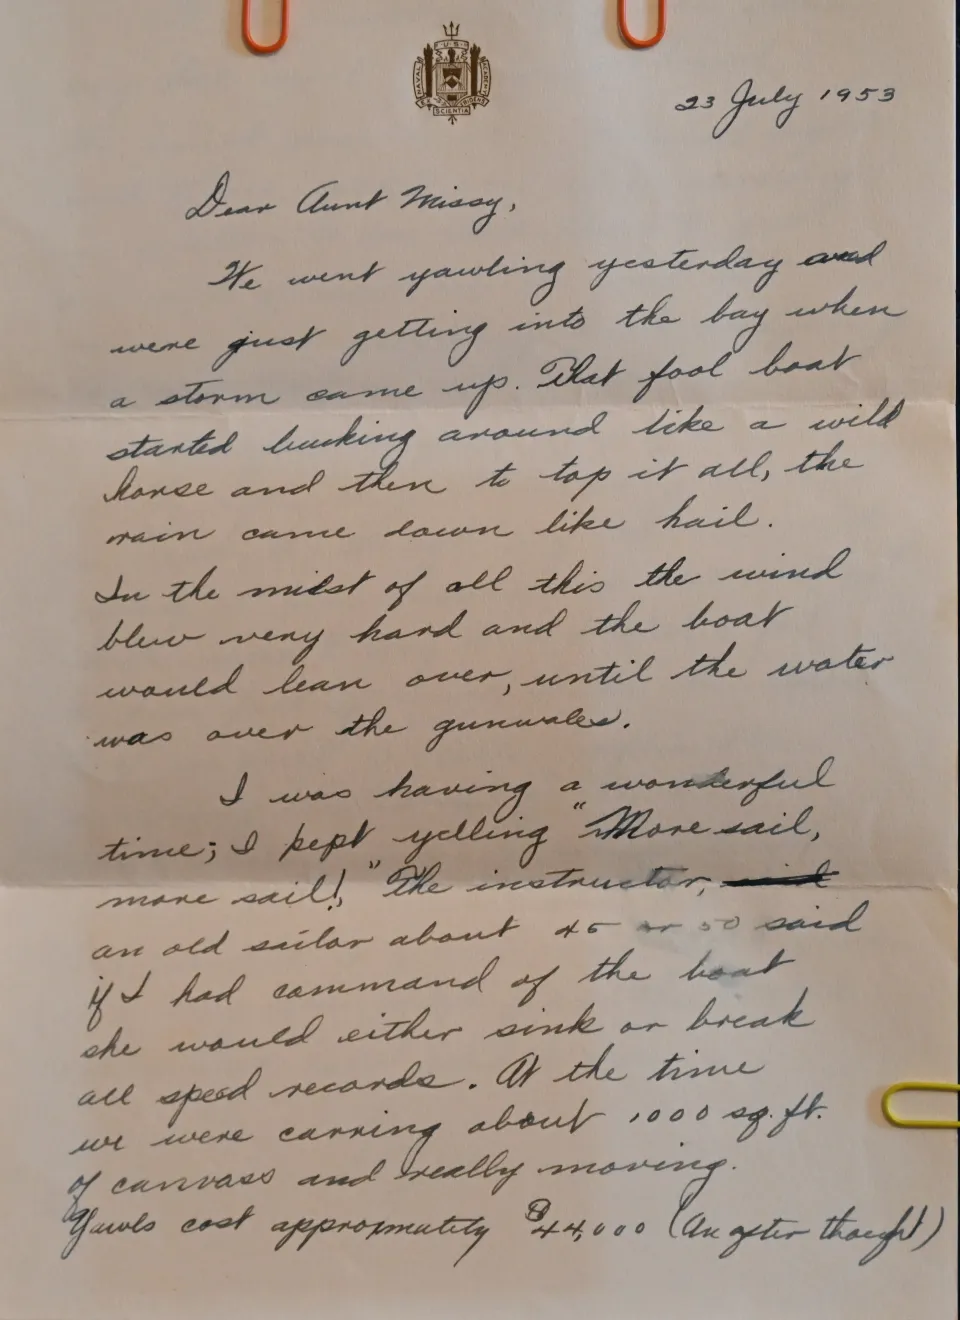 U.S.
NAVAL
ACADEMY
EX
TRIDENS
SCIENTIA
23 July 1953
Dear Aunt Missy,
We went yawling yesterday and
were just getting into the bay when
a storm came up. That fool boat
started bucking around like a wild
horse and then to top it all, the
rain came down like hail.
In the midst of all this the wind
blew very hard and the boat
would lean over, until the water
was over the gunwales.
I was having a wonderful
time; I kept yelling "More sail,
more sail!" The instructor, said
an old sailor about 45 or 50 said
if I had command of the boat
she would either sink or break
all speed records. At the time
we were carring about 1000 sq. ft.
of canvass and really moving.
Yawls cost approxmately $44,000 (An after thought)